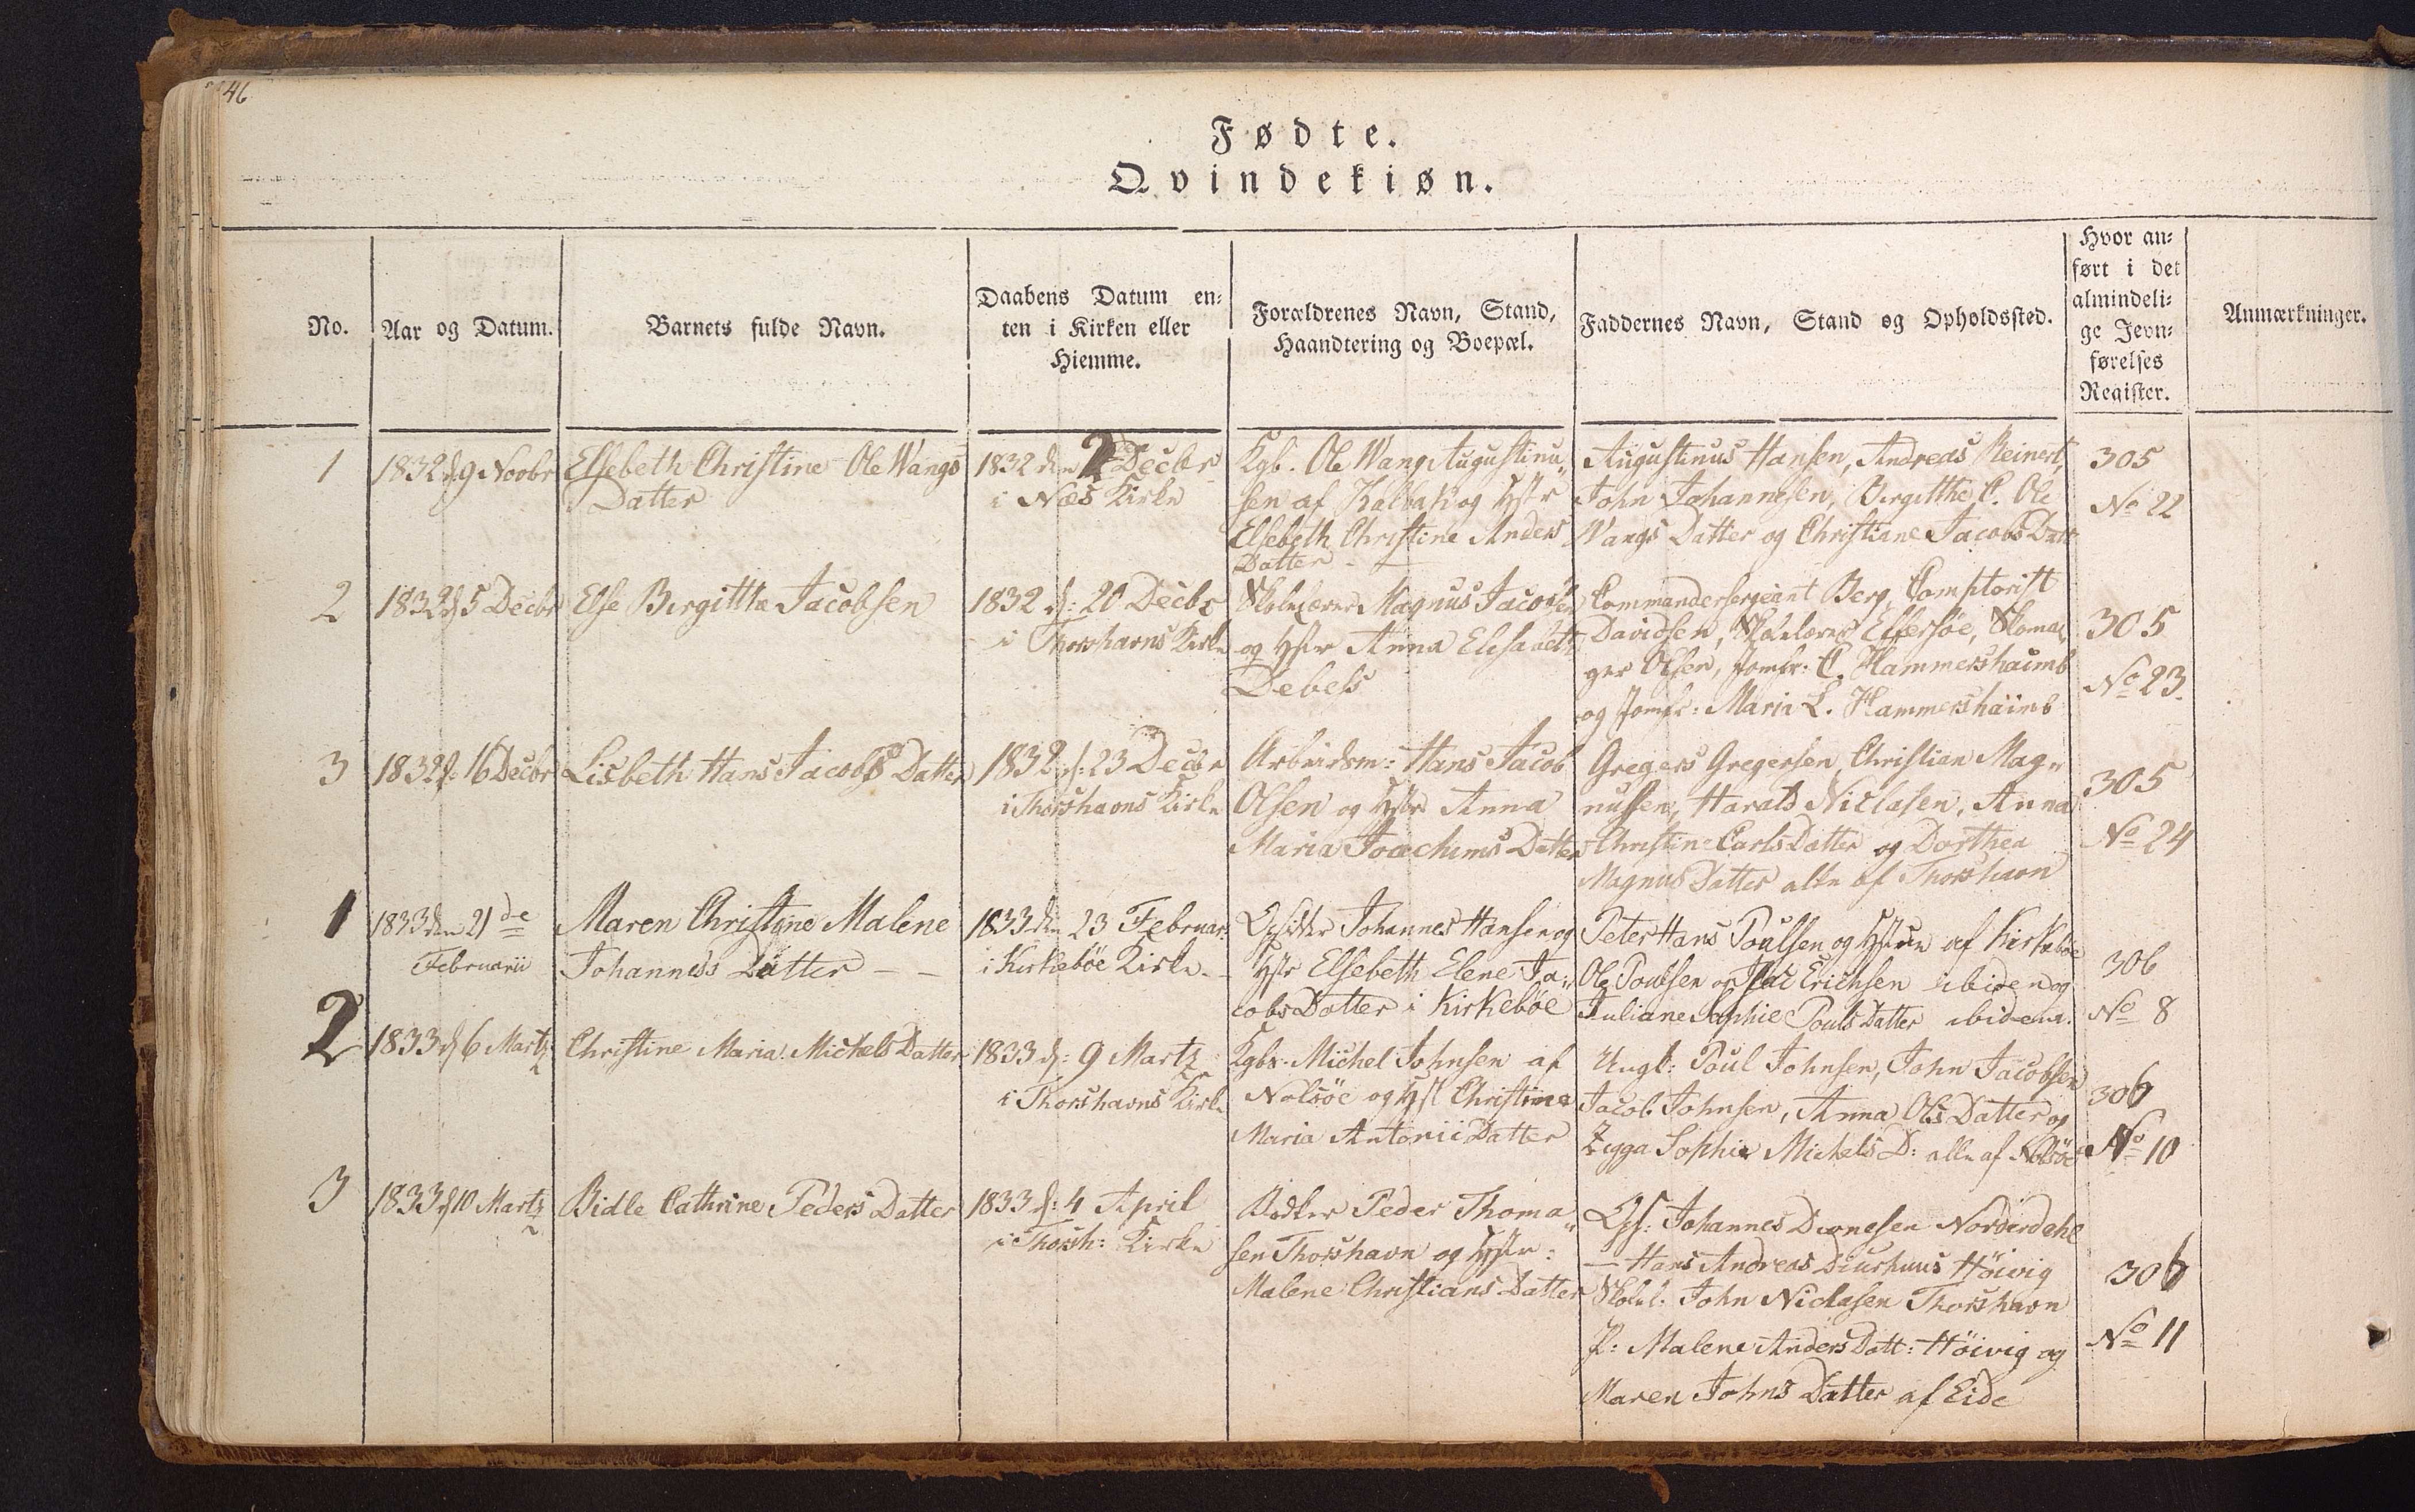 46
Fødte.
Qvindekiøn.
No.
Aar og Datum.
Barnets fulde Navn.
Daabens Datum en-
ten i Kirken eller
Hiemme.
Forældrenes Navn, Stand,
Haandtering og Boepæl.
Faddernes Navn, Stand og Opholdssted.
Hvor an-
ført i det
almindeli-
ge Jevn-
førelses
Register.
Anmærkninger.
1
1832 d 9 Novbr
Elsebeth Christine Ole Wangs
Datter
1832 den 2 Decbr
i Næs Kirke
Kgb. Ole Wang Augustinu„
sen af Kalbak og Hstr
Elsebeth Christine Anders
Datter -
Augustinus Hansen, Andreas Reinert,
John Johannesen, Birgitthe C. Ole
Wangs Datter og Christiane Jacobs Datt
305
No 22
2
1832 d 5 Decbr
Else Birgitta Jacobsen
1832 d: 20 Decbr
i Thorshavns Kirke
Skolelærer Magnus Jacobsen
og Hstr Anna Elisabeth
Debels
Commandersergeant Berg, Comptorist
Davidsen, Skolelærer Effersöe, Skoma„
ger Olsen, Jomfr: C. Hammershaimb
og Jomfr: Maria L. Hammershaimb
305
No 23.
3
1832 d: 16 Decbr
Lisbeth Hans Jacobs Datter
1832 d: 23 Decbr
i Thorshavns Kirke
Arbeidsm: Hans Jacob
Olsen og Hstr Anna
Maria Joachims Datter
Gregers Gregersen, Christian Mag„
nussen, Harald Niclasen, Anna
Christine Carls Datter og Dorthea
Magnus Datter alle af Thorshavn
305
No 24
1
1833 den 21de
Februarii
Maren Christine Malene
Johannes's Datter - -
1833 den 23 Februar:
i Kirkeböe Kirke. -
Opsidder Johannes Hansen og
Hstr Elsebeth Elene Ja„
cobs Datter i Kirkeböe
Peter Hans Poulsen og Hstrue af Kirkeböe
Ole Poulsen og Isac Erichsen ibiden og
Juliane Sophie Pouls Datter ibidem.
306
No 8
2
1833 d 6 Martz
Christine Maria Michels Datter
1833 d: 9 Martz
i Thorshavns Kirke
Kgbr. Michel Johnsen af
Nolsöe og Hst Christine
Maria Antonii Datter
Ungk: Poul Johnsen, John Jacobsen
Jacob Johnsen, Anna Ols Datter og
Zigga Sophie Michels D: alle af Nolsöe
306
No 10
3
1833 d 10 Martz
Bidle Cathrine Peders Datter
1833 d: 4 April
i Thorsh: Kirke
Bödker Peder Thoma„
sen Thorshavn og Hstr:
Malene Christians Datter
Ops: Johannes Dionesen Norderdahl
- Hans Andreas Diurhuus Höivig
Skolel. John Niclasen Thorshavn
P: Malene Anders Datt: Höivig og
Maren Johns Datter af Eide
306
No 11